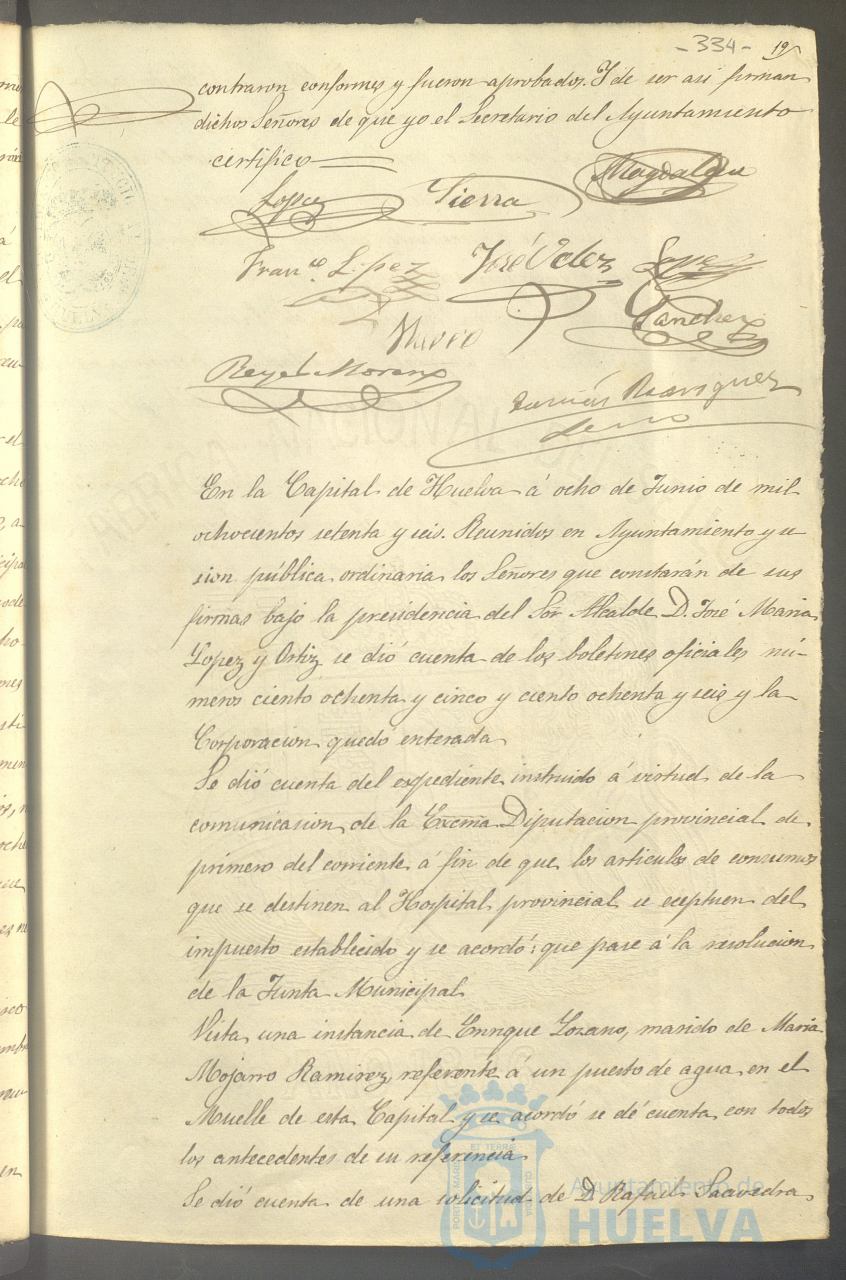 - 334 -
contraron conformes y fueron aprobados. Y de ser asi firman
dichos Señores de que yo el Secretario del Ayuntamiento
certifico
Lopez Tierra Magdalena
Fran.co Lopez José Velez Lopez
Sanchez
Reyes Moreno
En la Capital de Huelva á ocho de Junio de mil
ochocientos setenta y seis. Reunidos en Ayuntamiento y se
sion pública ordinaria los Señores que constarán de sus
firmas bajo la presidencia del Sor Alcalde D. José Maria
Lopez y Ortiz se dió cuenta de los boletines oficiales nú-
meros ciento ochenta y cinco y ciento ochenta y seis y la
Corporacion quedó enterada
Se dió cuenta del expediente instruido á virtud de la
comunicacion de la Excma Diputacion provincial de
primero del corriente á fin de que los articulos de consumos
que se destinen al Hospital provincial se eceptuen del
impuesto establecido y se acordó: que pase á la resolucion
de la Junta Municipal
Vista una instancia de Enrique Lozano, marido de Maria
Mojarro Ramirez referente á un puesto de agua en el
Muelle de esta Capital y se acordó se dé cuenta con todos
los antecedentes de su referencia
Se dió cuenta de una solicitud de D Rafael Saavedra
Ayuntamiento de
HUELVA